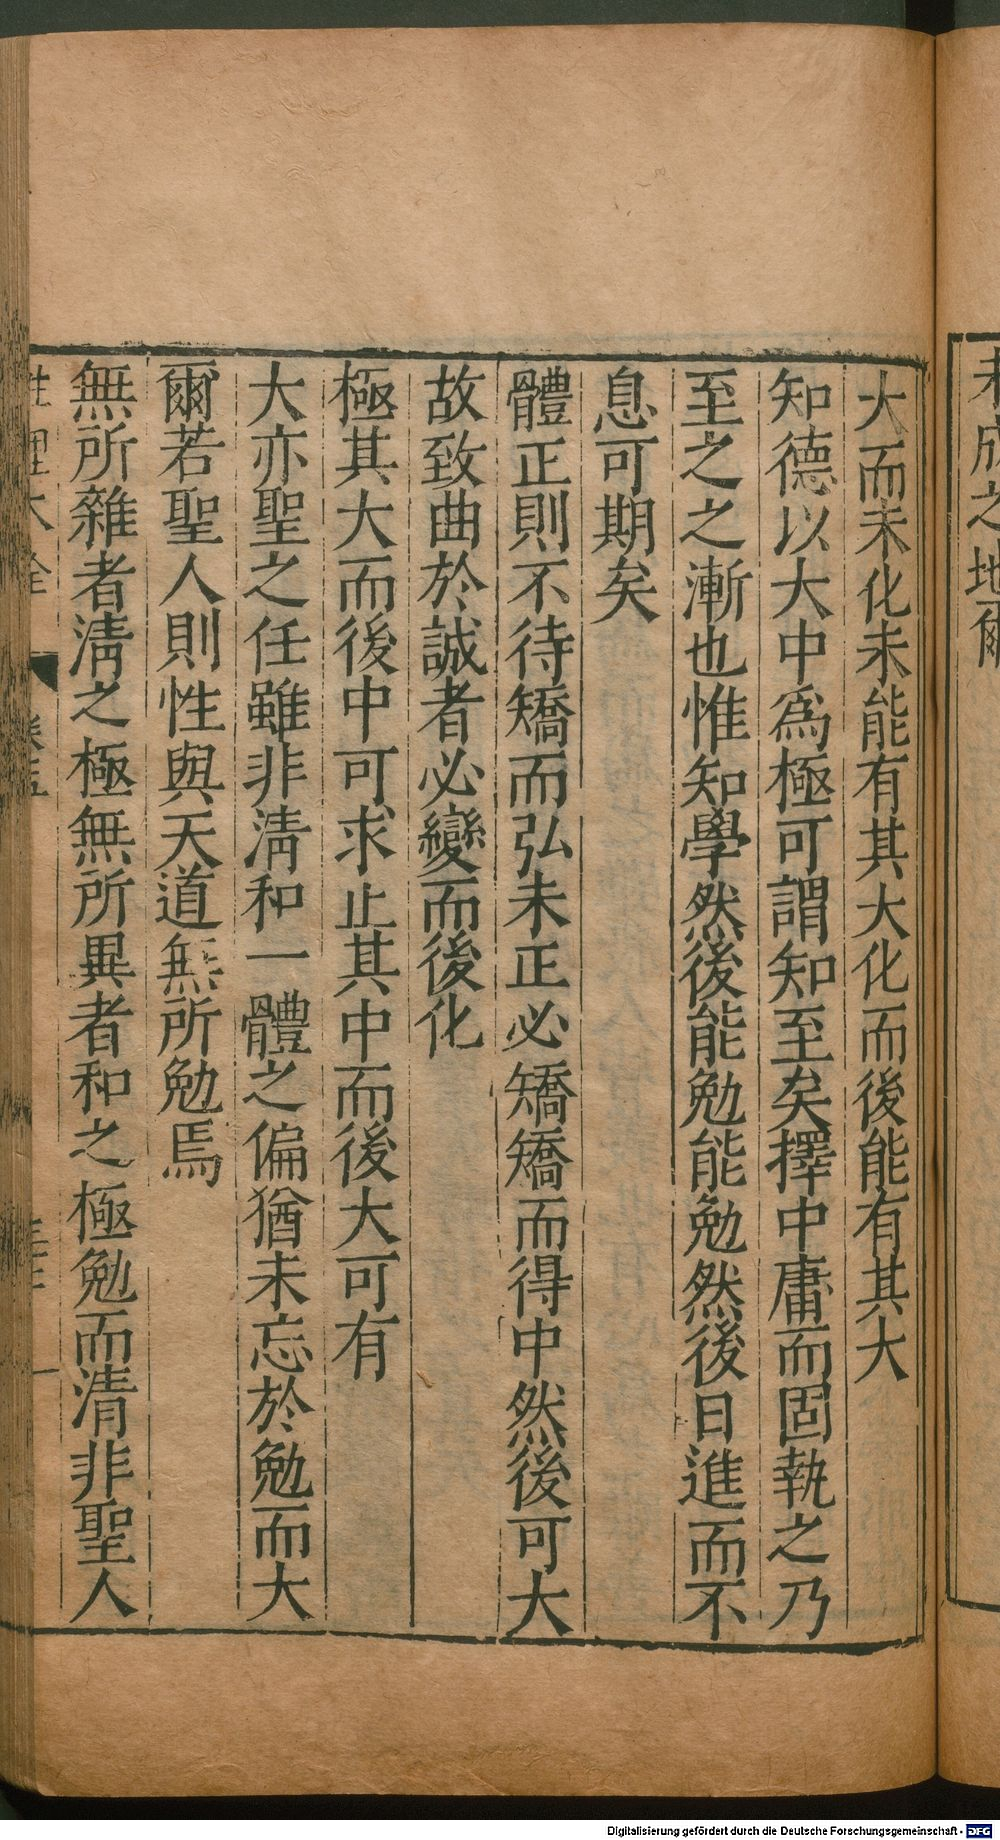 未成之地爾
大而未化未能有其大化而後能有其大
知德以大中爲極可謂知至矣擇中庸而固執之乃
至之之漸也惟知學然後能勉能勉然後日進而不
息可期矣
體正則不待矯而弘未正必矯矯而得中然後可大
故致曲於誠者必變而後化
極其大而後中可求止其中而後大可有
大亦聖之任雖非淸和一體之偏猶未忘於勉而大
爾若聖人則性與天道無所勉焉
無所雜者淸之極無所異者和之極勉而清非聖人
性理大全
卷五
Digitalisierung gefördert durch die Deutsche Forschungsgemeinschaft - DFG